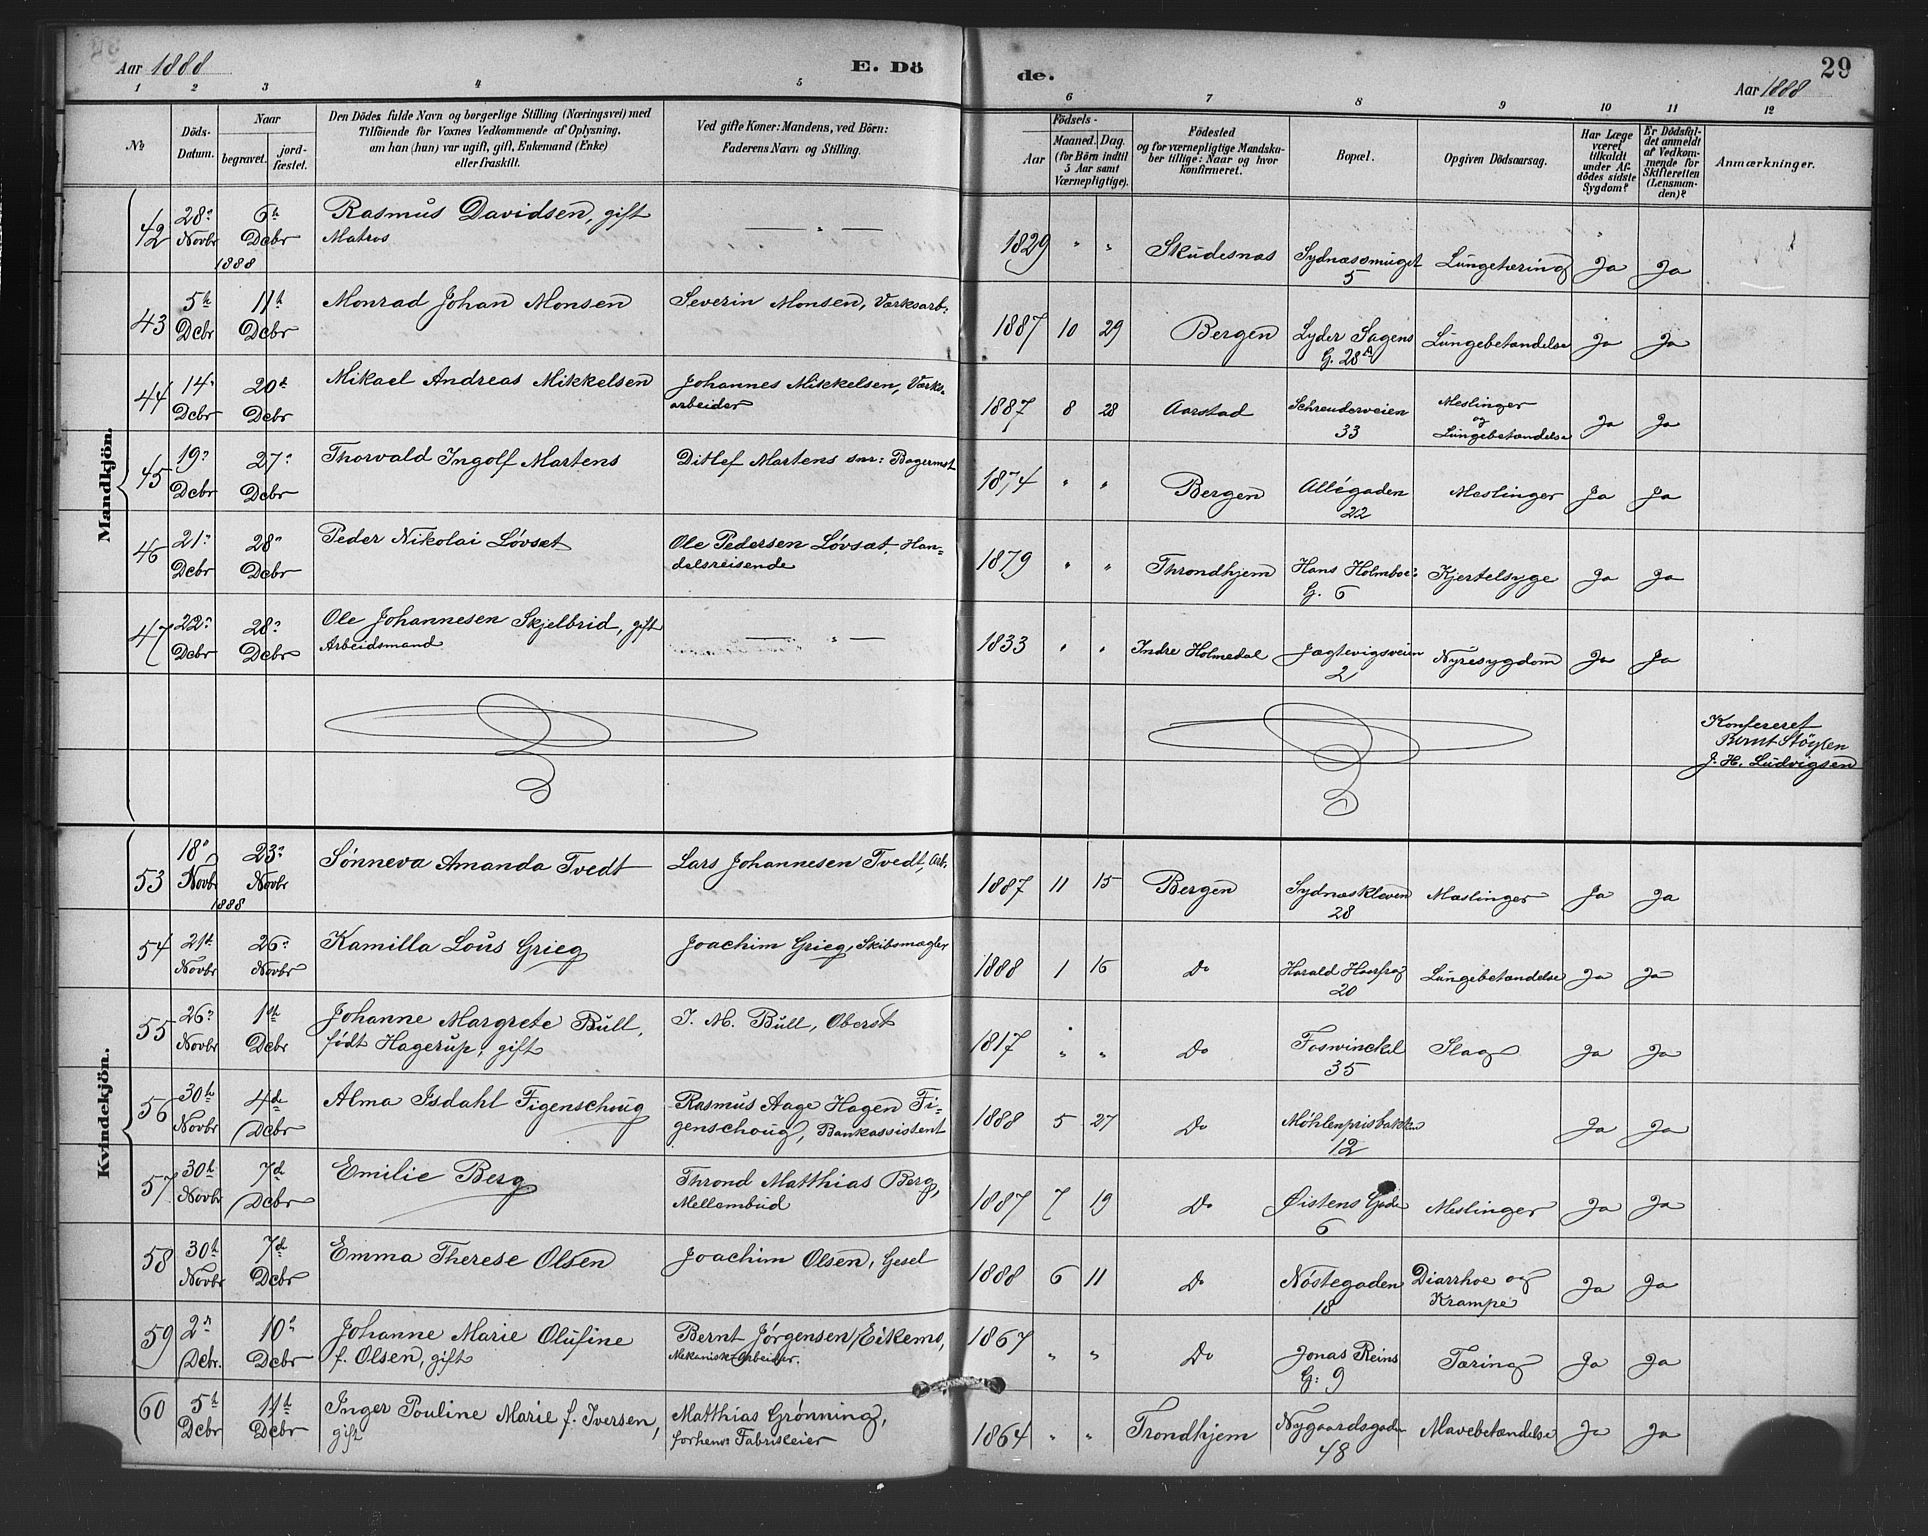 Aar 1888 E. Dö de. 29
Aar 1888
1 2 3 4 5 6 7 8 9 10 11 12
№ Döds-Datum. Naar begravet. jordfæstet. Den Dödes fulde Navn og borgerlige Stilling (Næringsvei) med Tilföiende for Voxnes Vedkommende af Oplysning, om han (hun) var ugift, gift, Enkemand (Enke) eller fraskilt. Ved gifte Koner: Mandens, ved Börn: Faderens Navn og Stilling. Födsels- Aar Maaned. Dag. (for Börn indtil 5 Aar samt Værnepligtige). Födested og for værnepligtige Mandskaber tillige: Naar og hvor konfirmeret. Bopæl. Opgiven Dödsaarsag. Har Læge været tilkaldt under Afdödes sidste Sygdom? Er Dödsfaldet anmeldt af Vedkommende for Skifteretten (Lensmanden)? Anmærkninger.
Mandkjön.
42 28de Novbr 1888 6te Dcbr Rasmus Davidsen, gift Matros — " — 1829 " " Skudesnæs Sydnæssmuget 5 Lungetæring Ja Ja
43 5te Dcbr 11te Dcbr Monrad Johan Monsen Severin Monsen, Værksarb. 1887 10 29 Bergen Lyder Sagens G. 28A Lungebetændelse Ja Ja
44 14de Dcbr 20de Dcbr Mikael Andreas Mikkelsen Johannes Mikkelsen, Værksarbeider 1887 8 28 Aarstad Schreuderveien 33 Meslinger og Lungebetændelse Ja Ja
45 19de Dcbr 27de Dcbr Thorvald Ingolf Martens Ditlef Martens snr: Bagermst 1874 " " Bergen Allégaden 22 Meslinger Ja Ja
46 21de Dcbr 28de Dcbr Peder Nikolai Løvset Ole Pedersen Løvsæt, Handelsreisende 1879 " " Throndhjem Hans Holmboes G. 6 Kjertelsyge Ja Ja
47 22de Dcbr 28de Dcbr Ole Johannesen Skjelbrid, gift Arbeidsmand — " — 1833 " " Indre Holmedal Jægtevigsveien 2 Nyresygdom Ja Ja
Konfereret
Bernt Støylen
J. H. Ludvigsen
Kvindekjön.
53 18de Novbr 1888 23de Novbr Sønneva Amanda Tvedt Lars Johannesen Tvedt, Arb. 1887 11 15 Bergen Sydnæskleven 28 Mæslinger Ja Ja
54 21de Novbr 26de Novbr Kamilla Lous Grieg Joachim Grieg, Skibsmægler 1888 1 16 Do Harald Haarfag 20 Lungebetændelse Ja Ja
55 26de Novbr 1ste Dcbr Johanne Margrete Bull, født Hagerup, gift J. M. Bull, Oberst 1817 " " Do Foswinckel 35 Slag Ja Ja
56 30te Novbr 4de Dcbr Alma Isdahl Figenschoug Rasmus Aage Hagen Figenschoug, Bankassistent 1888 5 27 Do Møhlenprisbakken 12 Ja Ja
57 30te Novbr 7de Dcbr Emilie Berg Thrond Matthias Berg, Mellembud 1887 7 19 Do Øistens Gade 6 Meslinger Ja Ja
58 30te Novbr 7de Dcbr Emma Therese Olsen Joachim Olsen, Gesel 1888 6 11 Do Nøstegaden 18 Diarrhoe og Krampe Ja Ja
59 2den Dcbr. 10de Dcbr Johanne Marie Olufine f. Olsen, gift Bernt Jørgensen Eikemo, Mekanisk Arbeider. 1867 " " Do Jonas Reins G: 9 Tæring Ja Ja
60 5te Dcbr 11te Dcbr Inger Pouline Marie f. Iversen, gift Matthias Grønning, forhenv Fabrikeier 1864 " " Trondhjem Nygaardsgaden 48 Mavebetændelse Ja Ja